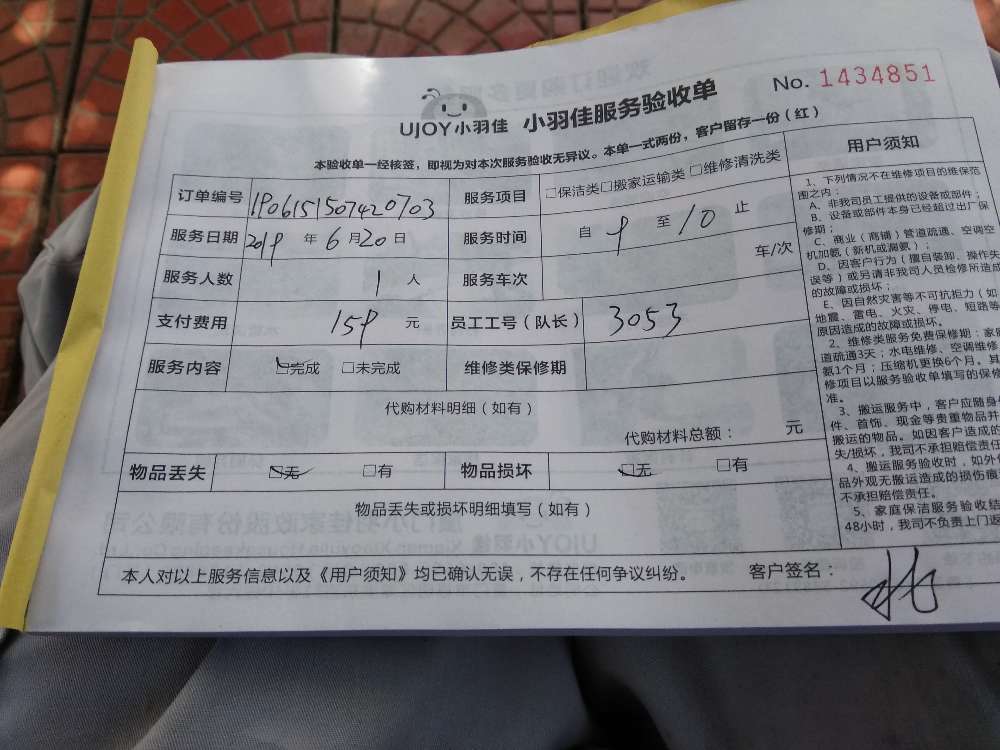 No. 1434851
UJOY小羽佳 小羽佳服务验收单
本验收单一经核签，即视为对本次服务验收无异议。本单一式两份，客户留存一份（红）
订单编号 1906151507420703 服务项目 □保洁类□搬家运输类 □维修清洗类
服务日期 2019 年 6 月 20 日 服务时间 自 9 至 10 止
服务人数 1 人 服务车次 车/次
支付费用 159 元 员工工号（队长） 3053
服务内容 ☑完成 □未完成 维修类保修期
代购材料明细（如有）
代购材料总额： 元
物品丢失 ☑无 □有 物品损坏 ☑无 □有
物品丢失或损坏明细填写（如有）
本人对以上服务信息以及《用户须知》均已确认无误，不存在任何争议纠纷。 客户签名：
用户须知
1、下列情况不在维修项目的维保范
围之内：
A、非我司员工提供的设备或部件；
B、设备或部件本身已经超过出厂保
修期；
C、商业（商铺）管道疏通、空调空
机加氨（新机或漏氨）；
D、因客户行为（擅自装卸、操作失
误等）或另请非我司人员检修所造成
的故障或损坏；
E、因自然灾害等不可抗拒力（如
地震、雷电、火灾、停电、短路等
原因造成的故障或损坏。
2、维修类服务免费保修期：家庭
道疏通3天；水电维修、空调维修
氨1个月；压缩机更换6个月，其
修项目以服务验收单填写的保修
准。
3、搬运服务中，客户应随身
件、首饰、现金等贵重物品并
搬运的物品。如因客户造成的
失/损坏，我司不承担赔偿责任
4、搬运服务验收时，如外
品外观无搬运造成的损伤痕
不承担赔偿责任。
5、家庭保洁服务验收结
48小时，我司不负责上门返